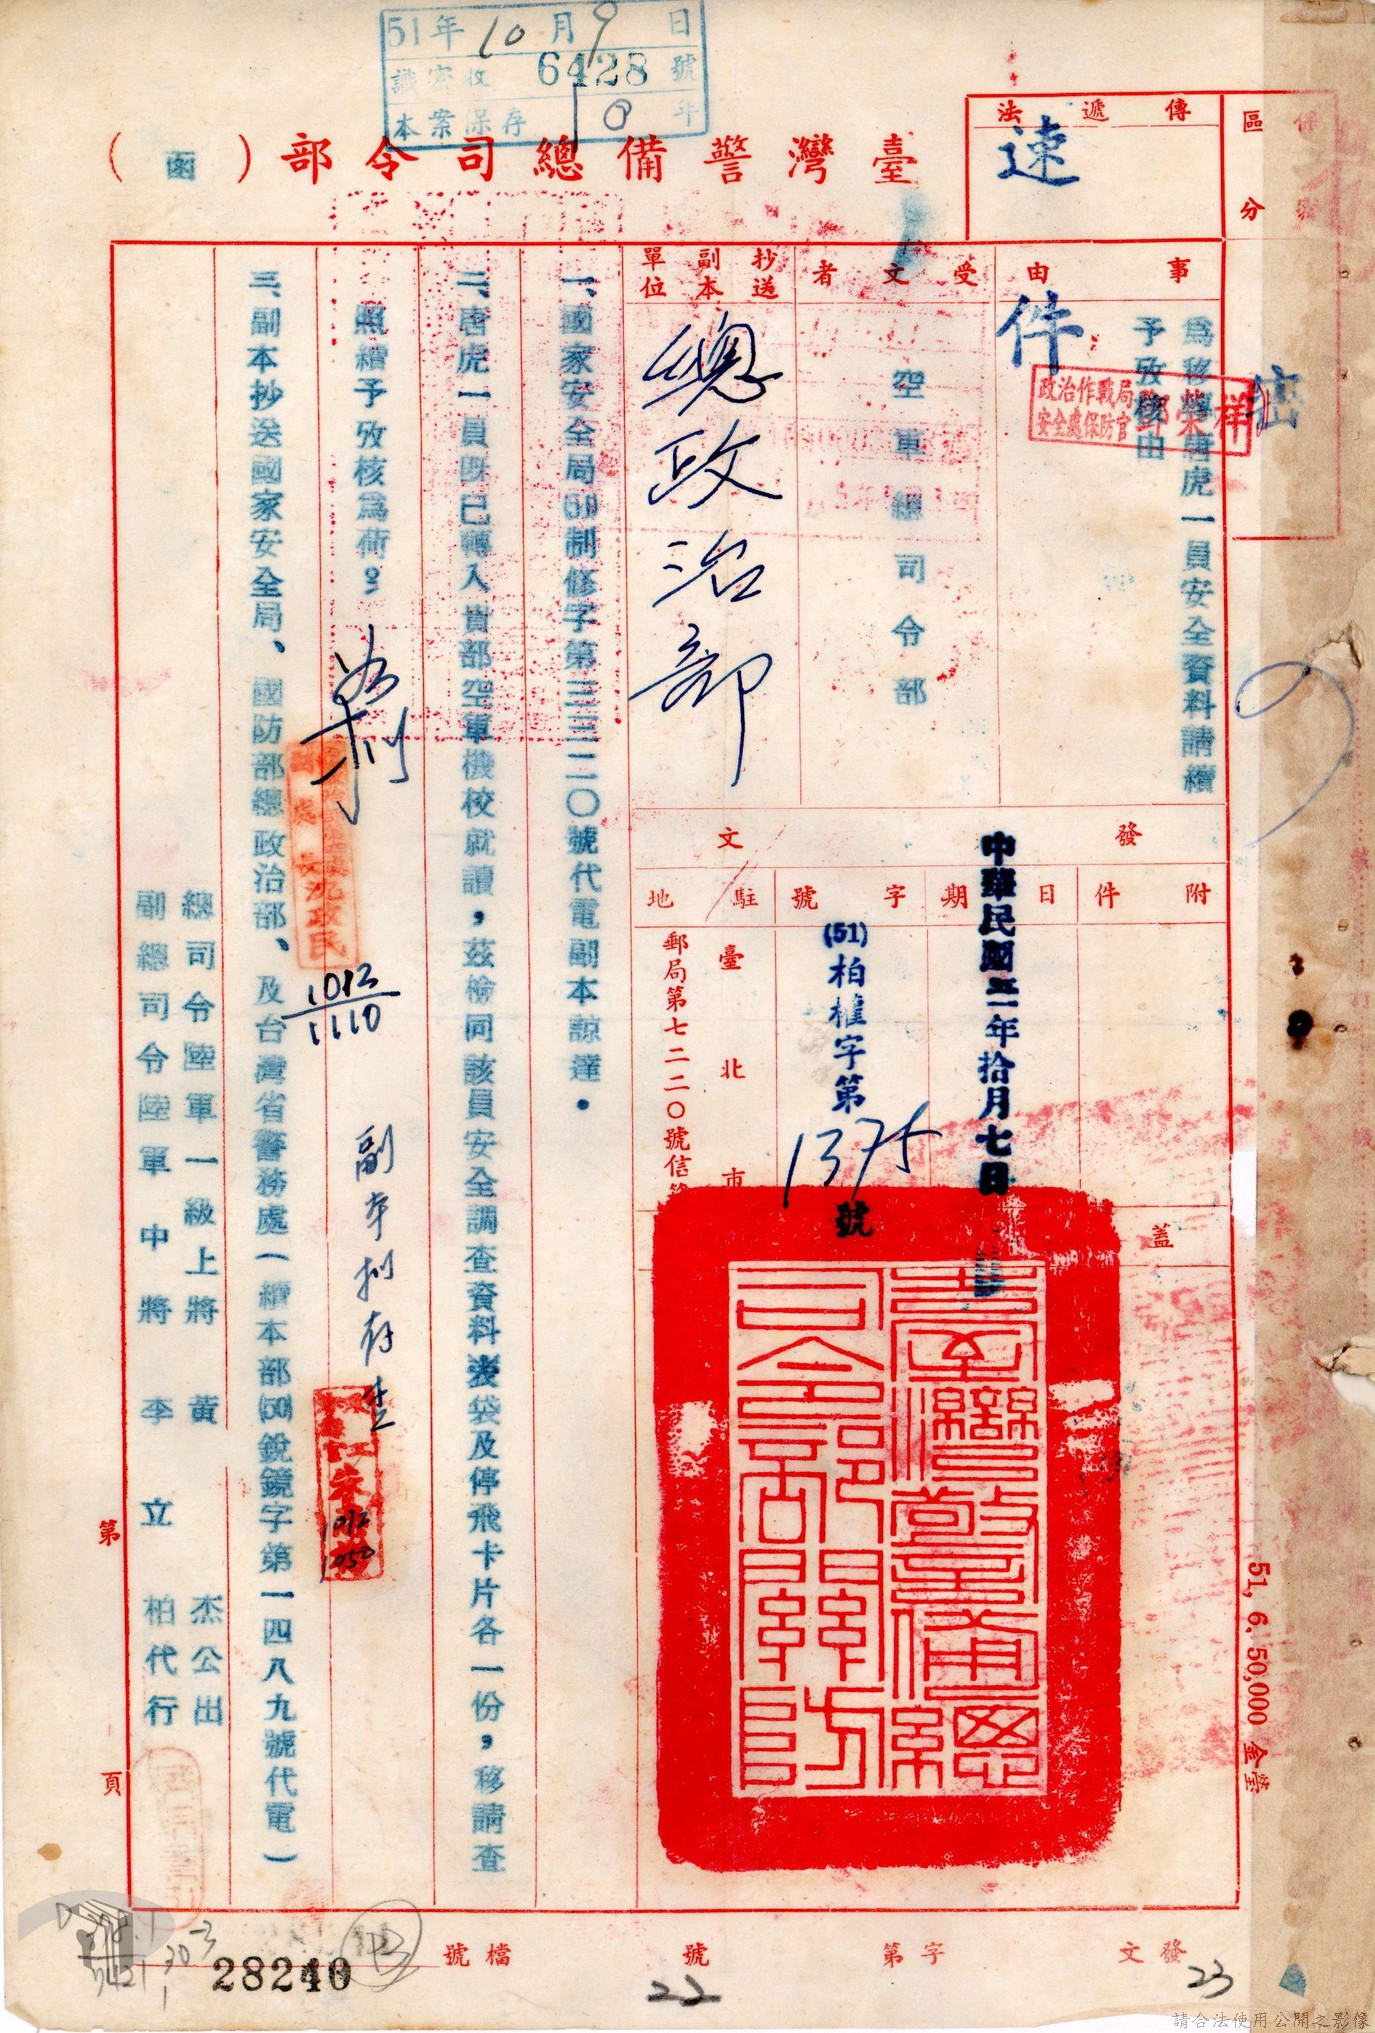 51年10月9日
收 6428號
本案保存10年
臺灣警備總司令部（函）
區分
密
傳遞法
速件
保
事由
為移
唐虎一員安全資料請續
予攷核由
政治作戰局
安全處保防官
榮祥
受文者
空軍總司令部
抄送副本單位
總政治部
發文
附件
日期
中華民國五一年拾月七日
字號
(51)柏權字第1375號
駐地
臺北市
郵局第七二二〇號信箱
蓋
臺灣警備總司令部關防
一、國家安全局(51)制修字第三三二〇號代電副本諒達。
二、唐虎一員既已轉入貴部空軍機校就讀，茲檢同該員安全調查資料表袋及停飛卡片各一份，移請查
照續予攷核為荷。
三、副本抄送國家安全局、國防部總政治部、及台灣省警務處(續本部(50)銳鏡字第一四八九號代電)
副處長沈政民
1012
1110
副本擬存查
1012
1050
總司令陸軍一級上將 黃 杰公出
副總司令陸軍中將 李立柏代行
第
頁
51, 6. 50,000
發文
字第
號
檔號
28240
22
23
請合法使用公開之影像